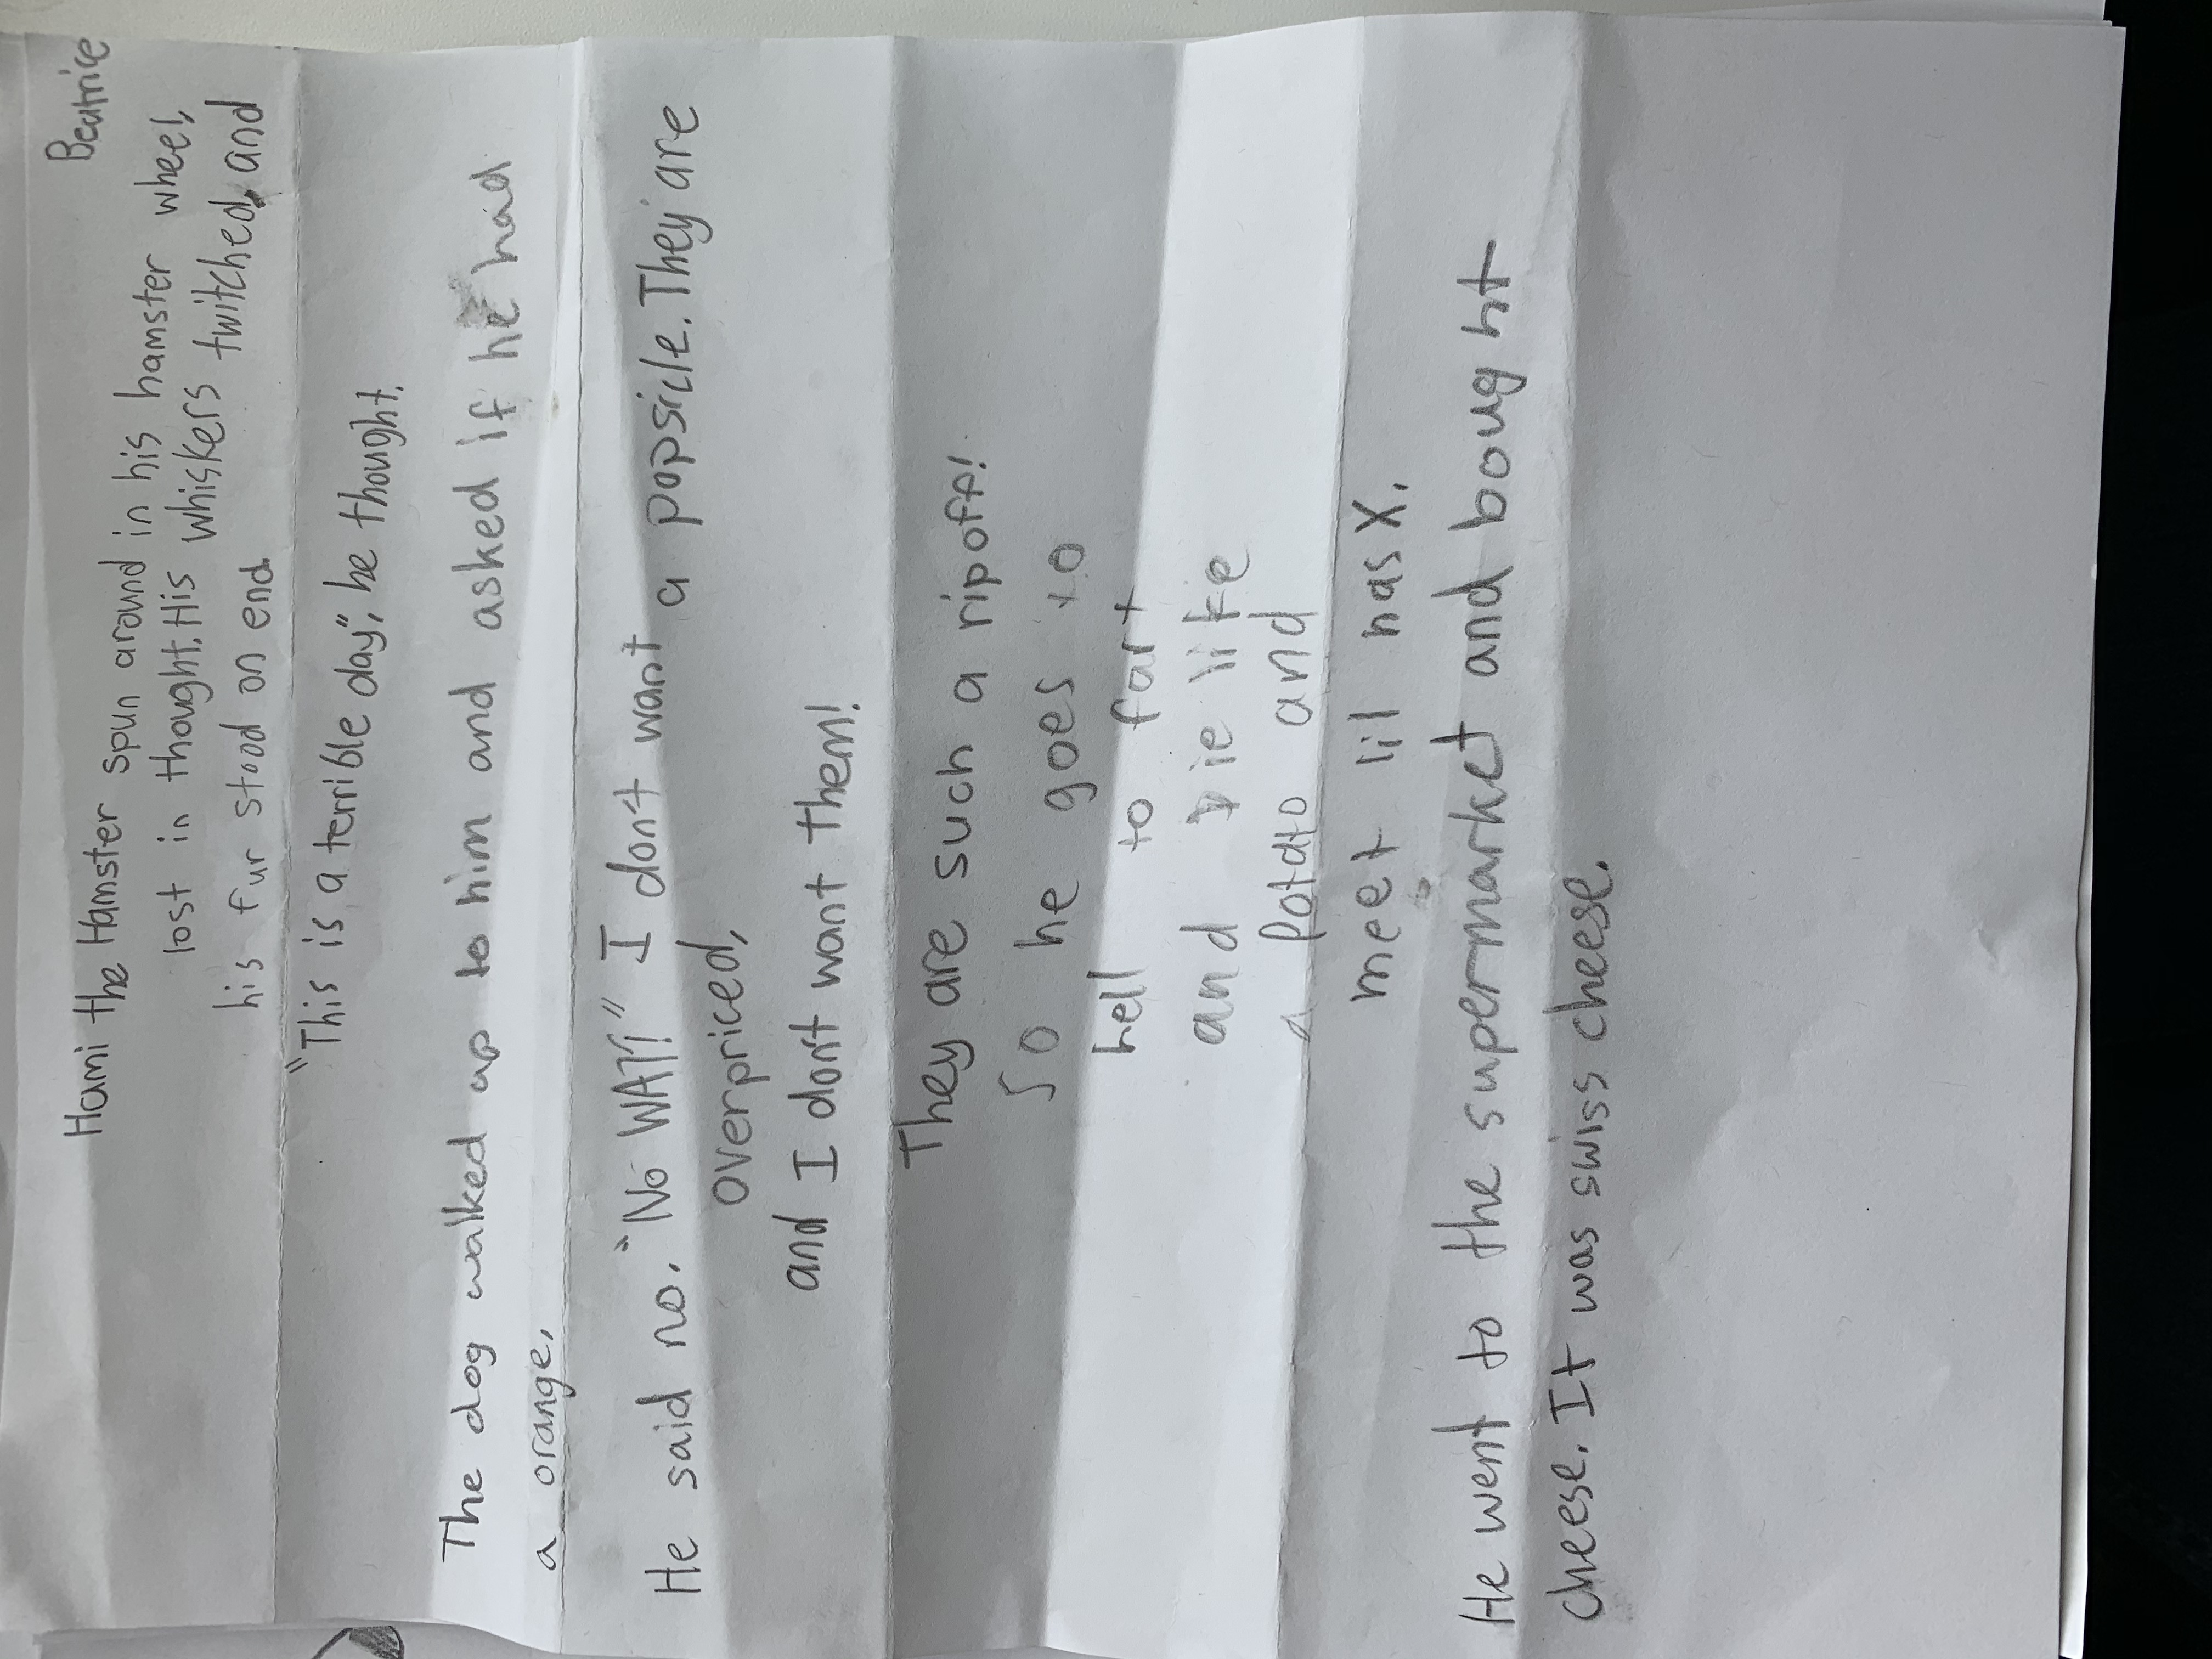 Beatrice
Hami the Hamster spun around in his hamster wheel,
lost in thought. His whiskers twitched, and
his fur stood on end.
"This is a terrible day", he thought.
The dog walked up to him and asked if he had
a orange.
He said no. "No WAY!" I don't want a popsicle. They are
overpriced,
and I don't want them!
They are such a ripoff!
So he goes to
hell to fart
and Die like
a Potato and
meet lil nas X.
He went to the supermarket and bought
cheese. It was swiss cheese.